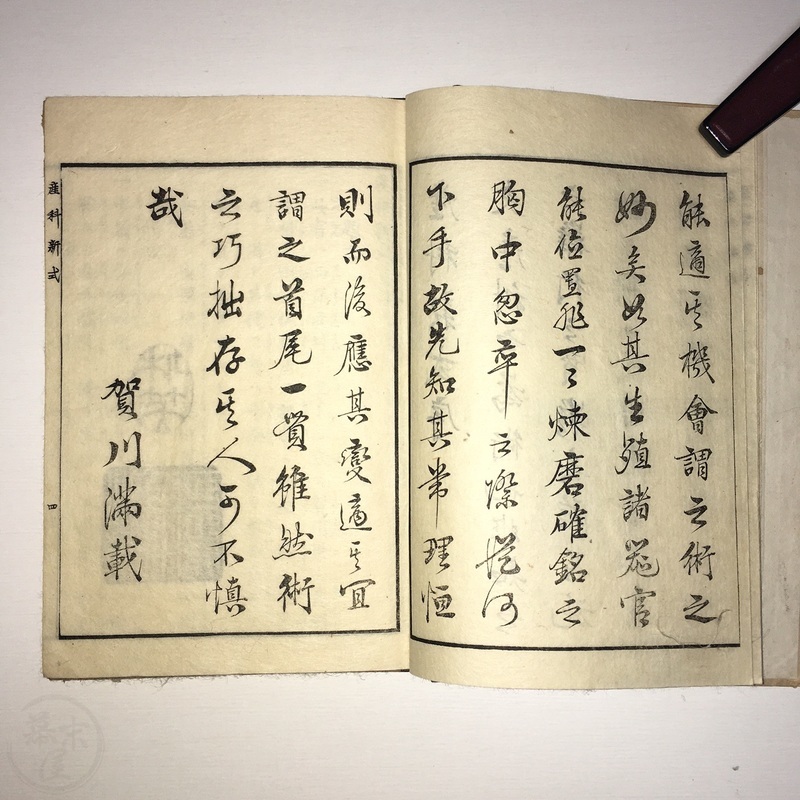 能適其機會謂之術之
妙矣如其生殖諸器官
能位置非一々煉磨確銘之
胸中忽卒之際從何
下手故先知其常理恒
則而後應其變適其宜
謂之首尾一貫雖然術
之巧拙存其人可不慎
哉
賀川滿載
産科新式
四